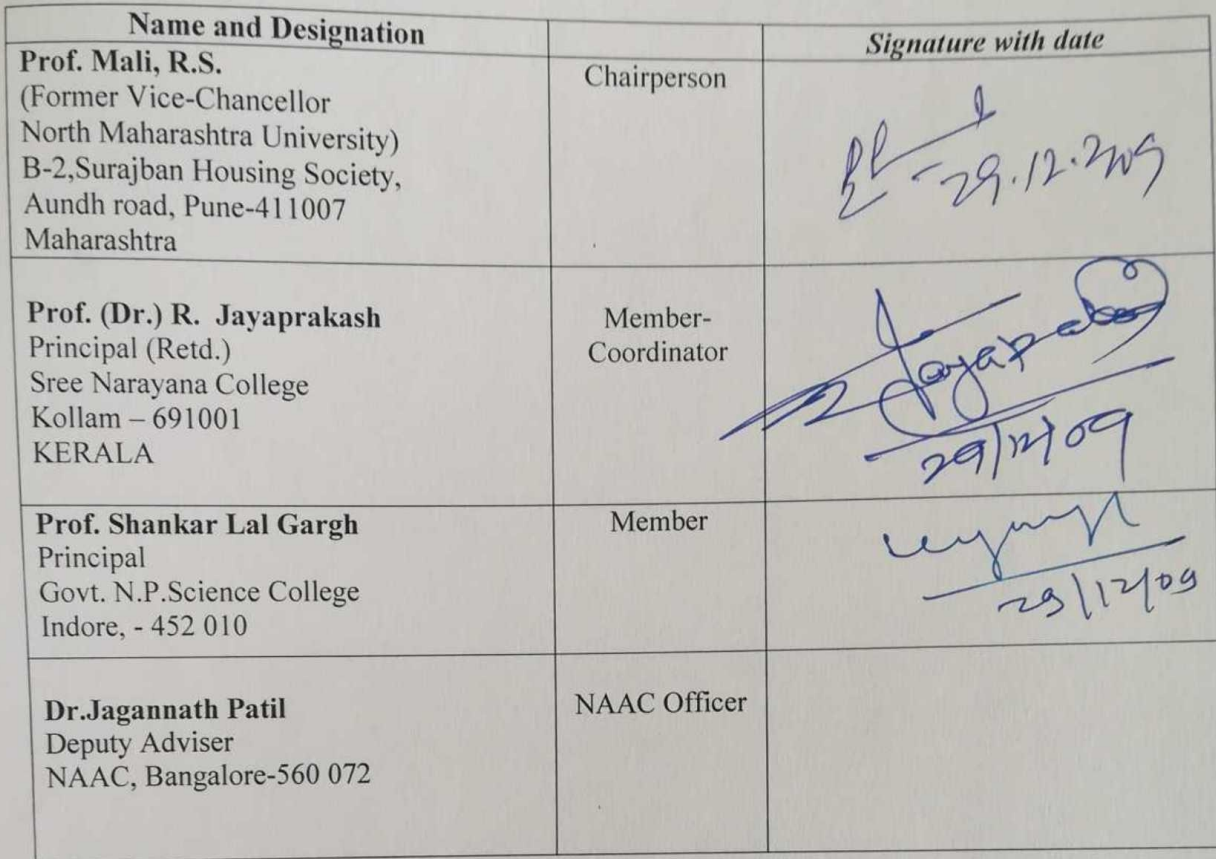 Name and Designation
Signature with date
Prof. Mali, R.S.
(Former Vice-Chancellor
North Maharashtra University)
B-2,Surajban Housing Society,
Aundh road, Pune-411007
Maharashtra
Chairperson
29.12.2009
Prof. (Dr.) R. Jayaprakash
Principal (Retd.)
Sree Narayana College
Kollam – 691001
KERALA
Member-
Coordinator
29/12/09
Prof. Shankar Lal Gargh
Principal
Govt. N.P.Science College
Indore, - 452 010
Member
29/12/09
Dr.Jagannath Patil
Deputy Adviser
NAAC, Bangalore-560 072
NAAC Officer